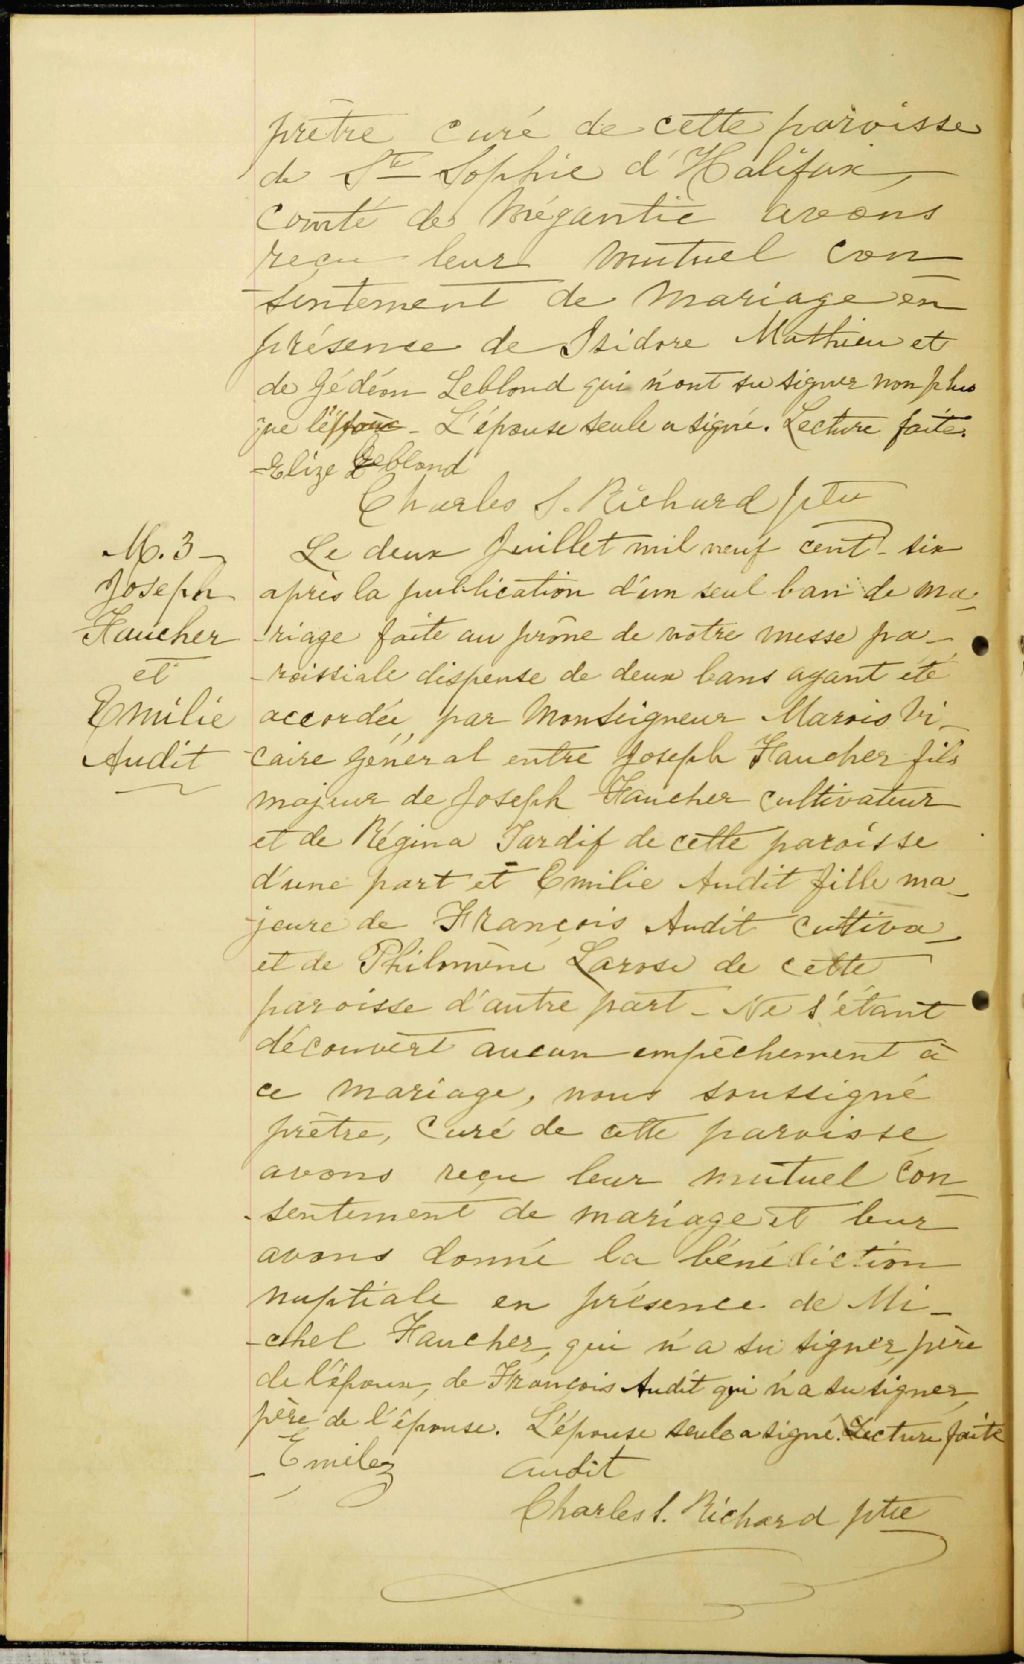 prêtre curé de cette paroisse
de Ste Sophie d'Halifax,
comté de Mégantic avons
reçu leur mutuel con
sentement de mariage en
présence de Isidore Mathieu et
de Gédéon Leblond qui n'ont su signer non plus
que l'époux - L'épouse seule a signé. Lecture faite.
Elize Leblond
Charles S. Richard ptre
M. 3
Joseph
Faucher
et
Emilie
Audit
Le deux Juillet mil neuf cent-six
après la publication d'un seul ban de ma-
-riage faite au prône de notre messe pa-
-roissiale dispense de deux bans ayant été
accordée, par Monseigneur Marois Vi-
caire Général entre Joseph Faucher fils
majeur de Joseph Faucher cultivateur
et de Régina Tardif de cette paroisse
d'une part et Emilie Audit fille ma-
-jeure de François Audit cultiva-
et de Philomène Larose de cette
paroisse d'autre part - Ne s'étant
découvert aucun empêchement à
ce mariage, nous soussigné
prêtre, curé de cette paroisse
avons reçu leur mutuel con-
-sentement de mariage et leur
avons donné la bénédiction
nuptiale en présence de Mi-
-chel Faucher, qui n'a su signer, père
de l'époux, de François Audit qui n'a su signer,
père de l'épouse. L'épouse seule a signé. Lecture faite
Emilez Audit
Charles S. Richard ptre